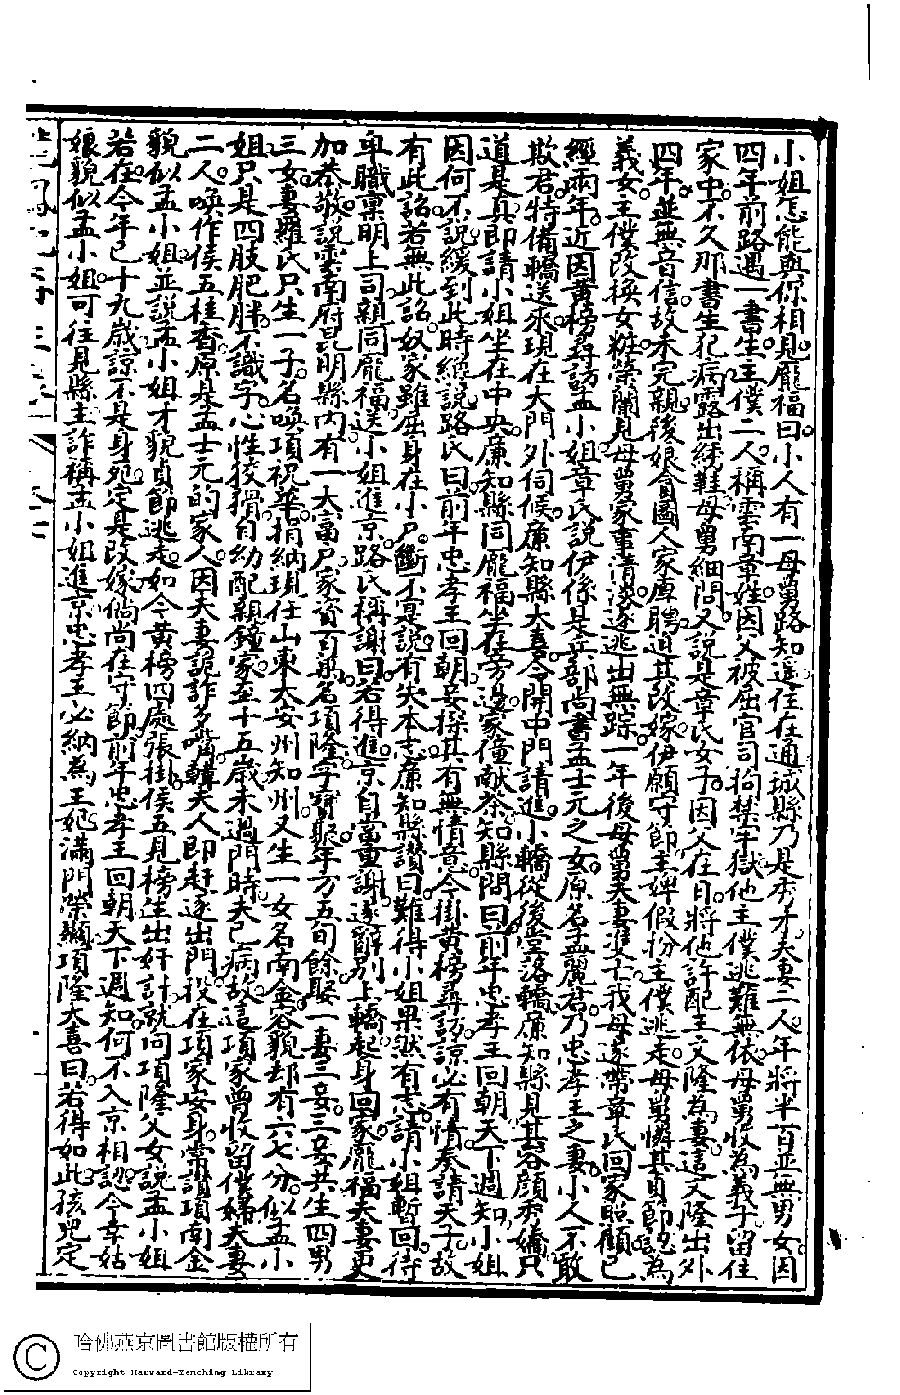 小姐怎能與你相見。龐福曰。小人有一母舅路知遥。住在通城縣。乃是秀才。夫妻二人。年將半百。並無男女。因
四年前路遇一書生。主僕二人。稱雲南章姓。因父被屈官司。拘禁牢獄。他主僕逃難無依。母舅收為義子。留住
家中。不久那書生犯病。露出綉鞋。母舅細問。又說是章氏女子。因父在日。將他許配王文隆為妻。這文隆出外
四年。並無音信。故未完親。後娘貪圖人家厚聘。迫其改嫁。伊願守節。主婢假扮主僕逃走。母舅憐其貞節。認為
義女。主僕改換女粧。榮蘭見母舅家事清淡。遂逃出無踪。一年後母舅夫妻雙亡。我母遂帶章氏回家照顧。已
經兩年。近因黃榜尋訪孟小姐。章氏說伊係是兵部尚書孟士元之女。原名孟麗君。乃忠孝王之妻。小人不敢
欺君。特備轎送來。現在大門外伺候。廉知縣大喜。令開中門。請進小轎。從後堂落轎。廉知縣見其容顏秀嬌。只
道是真。即請小姐坐在中央。廉知縣同龐福坐在旁邊。家僮献茶。知縣問曰。前年忠孝王回朝。天下週知。小姐
因何不說。緩到此時纔說。路氏曰。前年忠孝王回朝。妾探其有無情意。今掛黃榜尋訪。諒必有情。奏請天子。故
有此詔。若無此詔。奴家雖屈身在小戶。斷不寔說。有失本志。廉知縣讚曰。難得小姐果然有志。請小姐暫回。待
卑職稟明上司。親同龐福送小姐進京。路氏稱謝曰。若得進京。自當重謝。遂辭別上轎。起身回家。龐福夫妻更
加恭敬。說雲南府昆明縣內。有一大富戶。家資百萬。名項隆。字寶聚。年方五旬餘。娶一妻三妾。三妾共生四男
三女。妻羅氏只生一子。名喚項祝華。捐納現任山東太安州知州。又生一女名南金。容貌却有六七分似孟小
姐。只是四肢肥胖。不識字。心性狡猾。自幼配親鐘家。至十五歲未過門時。夫已病故。這項家曾收留僕婦夫妻
二人。喚作侯五桂香。原是孟士元的家人。因夫妻詭詐多嘴。韓夫人即赶逐出門。投在項家安身。常讚項南金
貌似孟小姐。並說孟小姐才貌貞節逃走。如今黃榜四處張掛。侯五見榜生出奸計。就向項隆父女說。孟小姐
若在。今年已十九歲。諒不是身死。定是改嫁。倘尚在守節。前年忠孝王回朝。天下週知。何不入京相認。今幸姑
娘貌似孟小姐。可往見縣主。詐稱孟小姐。進京忠孝王必納為王妃。滿門榮顯。項隆大喜曰。若得如此。孩兒定
哈佛燕京圖書館版權所有
Copyright Harvard-Yenching Library